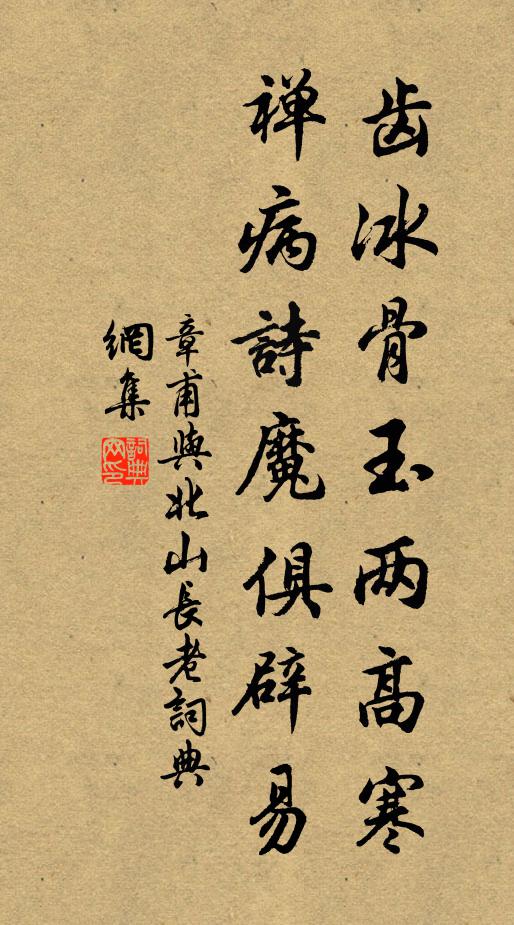 齿冰骨玉两高寒
禅病詩魔俱辟易
章甫與北山長老詞典
網集
詞典
网印